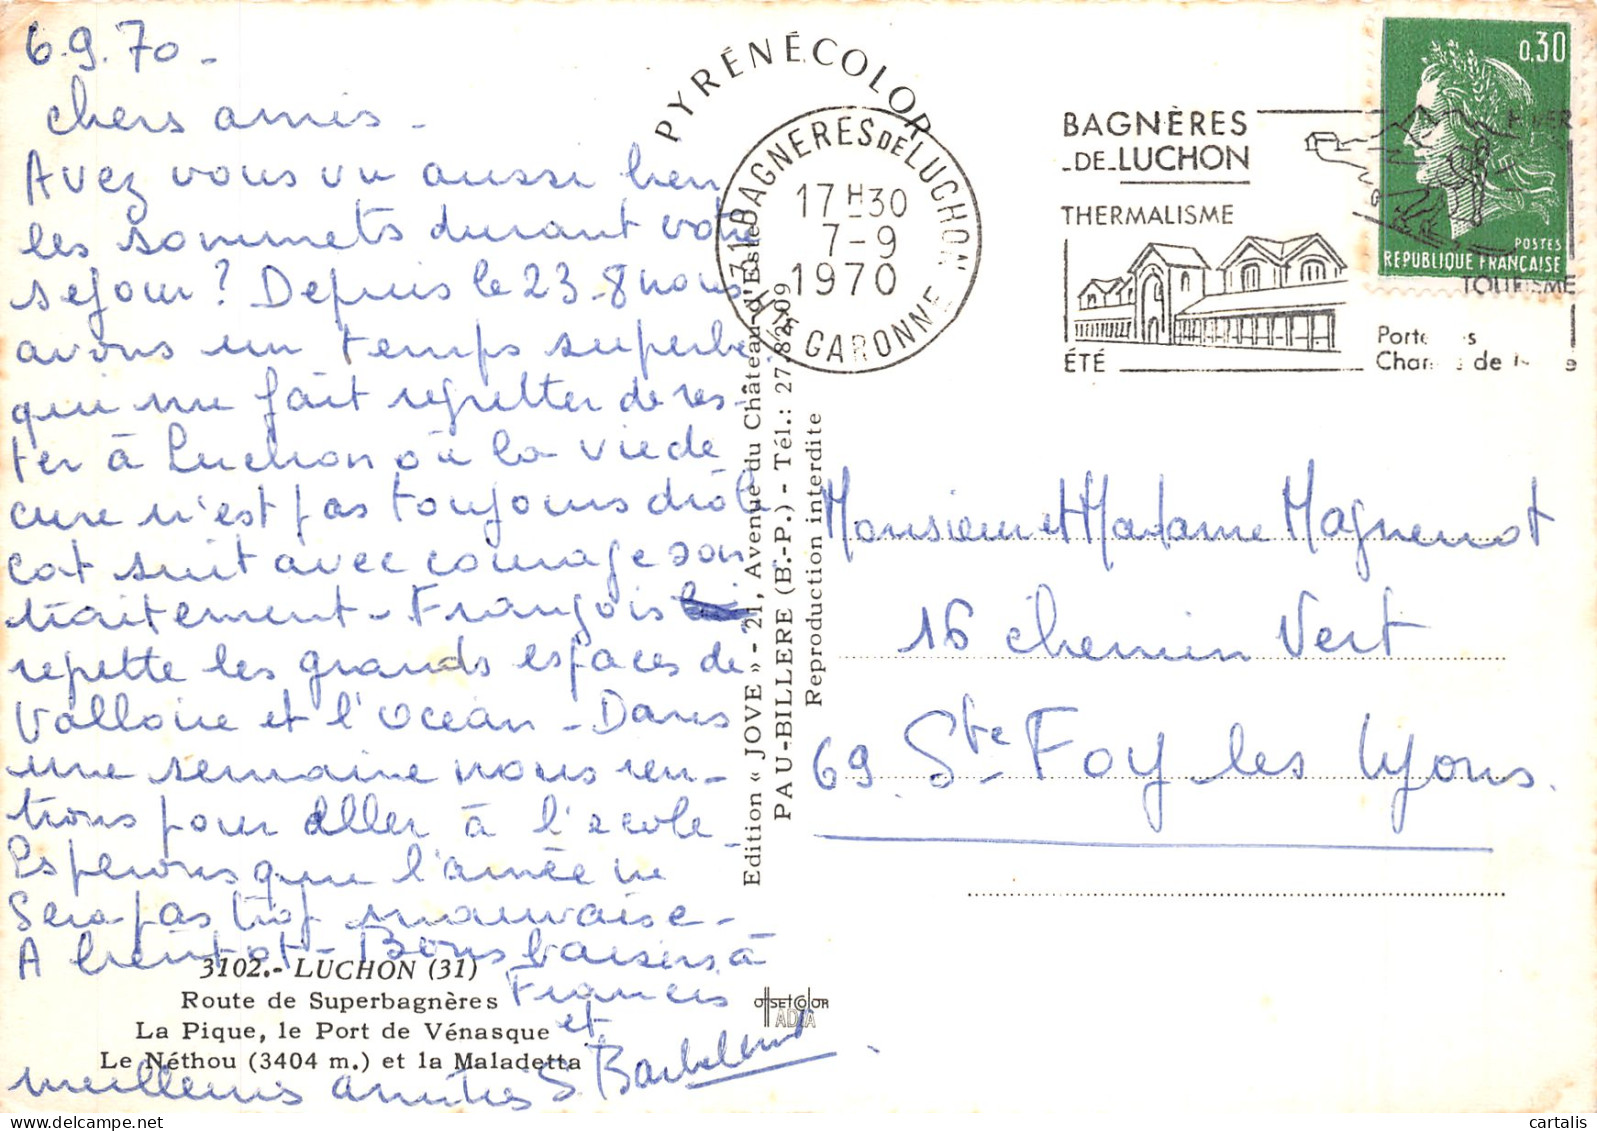 6.9.70 -
Chers amis -
Avez vous vu aussi bien
les sommets durant votre
sejour ? Depuis le 23-8 nous
avons un temps superbe
qui me fait regretter de res-
ter à Luchon où la vie de
cure n'est pas toujours drôle
cat suit avec courage son
traitement - François
repette les grands espaces de
Valloire et l'Ocean - Dans
une semaine nous ren-
trons pour aller à l'ecole
Esperons que l'année ne
Sera pas trop mauvaise -
A bientot - Bons baisers à
Francis
et
meilleures amitiés
3102.- LUCHON (31)
Route de Superbagnères
La Pique, le Port de Vénasque
Le Néthou (3404 m.) et la Maladetta
PYRÉNÉCOLOR
Edition « JOVE » - 21, Avenue du Château-d'Este
PAU-BILLERE (B.-P.) - Tél.: 27.82.09
Reproduction interdite
OFFSET COLOR
31 BAGNERES DE LUCHON
17 H 30
7 - 9
1970
Hte GARONNE
BAGNÈRES
-DE-LUCHON
THERMALISME
ÉTÉ
HIVER
TOURISME
0,30
POSTES
REPUBLIQUE FRANÇAISE
Monsieur et Madame Magnenot
16 chemin Vert
69. Ste Foy les Lyons.
cartalis